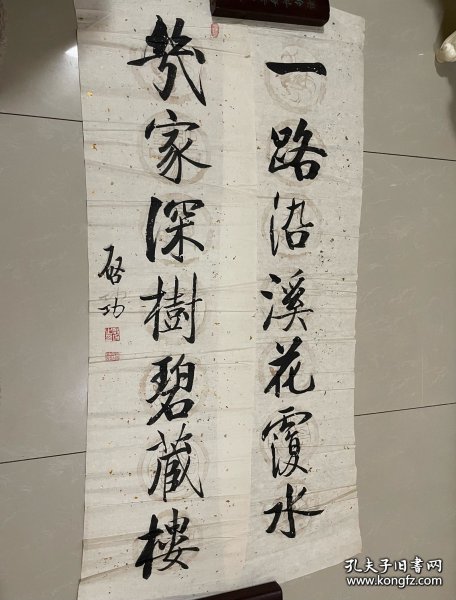 一路沿溪花覆水
幾家深樹碧藏樓
啟功
孔夫子旧书网
www.kongfz.com